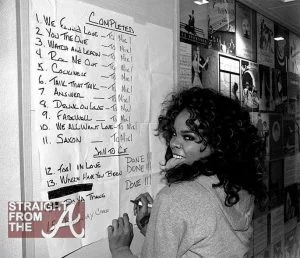 COMPLETED
1. WE FOUND LOVE - TO MIX!
2. YOU THE ONE - TO MIX!
3. WATCH AND LEARN - TO MIX!
4. ROC ME OUT - TO MIX!
5. COCKINESS - TO MIX!
6. TALK THAT TALK - TO MIX!
7. ANSWER - TO MIX!
8. DRUNK ON LOVE - TO MIX!
9. FAREWELL - TO MIX!
10. WE ALL WANT LOVE - TO MIX!
11. SAXON - TO MIX!
12. FOOL IN LOVE DONE!!!
13. WHERE HAVE YOU BEEN DONE!!!
DONE!!!
THANG
AWAY
STRAIGHT
FROM THE
A